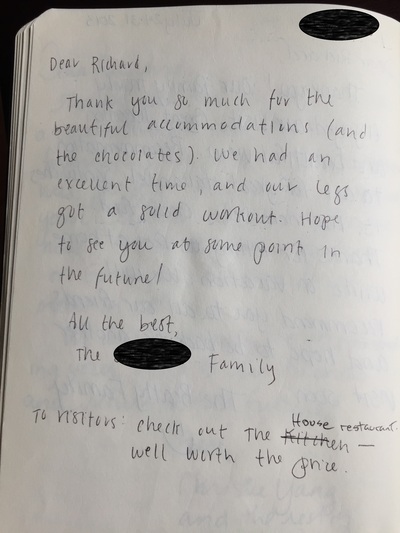 Dear Richard,
Thank you so much for the
beautiful accommodations (and
the chocolates). We had an
excellent time, and our legs
got a solid workout. Hope
to see you at some point in
the future!
All the best,
The Family
To visitors: check out The Kitchen House restaurant. —
well worth the price.